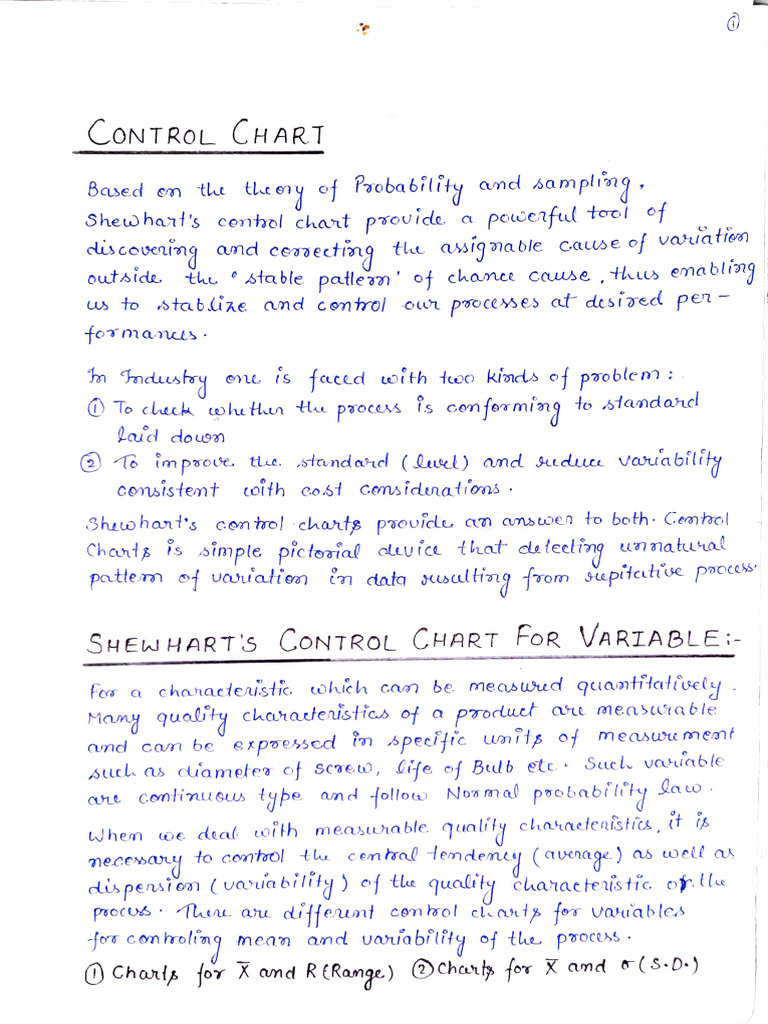 ①
CONTROL CHART
Based on the theory of Probability and sampling,
Shewhart's control chart provide a powerful tool of
discovering and correcting the assignable cause of variation
outside the 'stable pattern' of chance cause, thus enabling
us to stablize and control our processes at desired per-
formances.
In Industry one is faced with two kinds of problem:
① To check whether the process is conforming to standard
laid down
② To improve the standard (level) and reduce variability
consistent with cost considerations.
Shewhart's control charts provide an answer to both. Control
Charts is simple pictorial device that detecting unnatural
pattern of variation in data resulting from repitative process.
SHEWHART'S CONTROL CHART FOR VARIABLE:-
For a characteristic which can be measured quantitatively.
Many quality characteristics of a product are measurable
and can be expressed in specific units of measurement
such as diameter of screw, life of Bulb etc. Such variable
are continuous type and follow Normal probability law.
When we deal with measurable quality characteristics, it is
necessary to control the central tendency (average) as well as
dispersion (variability) of the quality characteristic or the
process. There are different control charts for variables
for controling mean and variability of the process.
① Charts for X̅ and R (Range) ② Charts for X̅ and σ (S.D.)